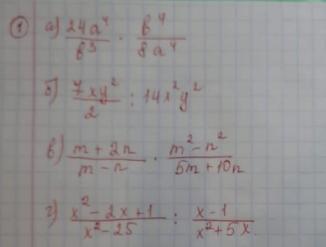 ① а) 24a⁴/b³ · b⁴/8a⁴
б) 7xy²/2 : 14x²y²
в) m + 2n/m − n · m² − n²/5m + 10n
г) x² − 2x + 1/x² − 25 : x − 1/x² + 5x